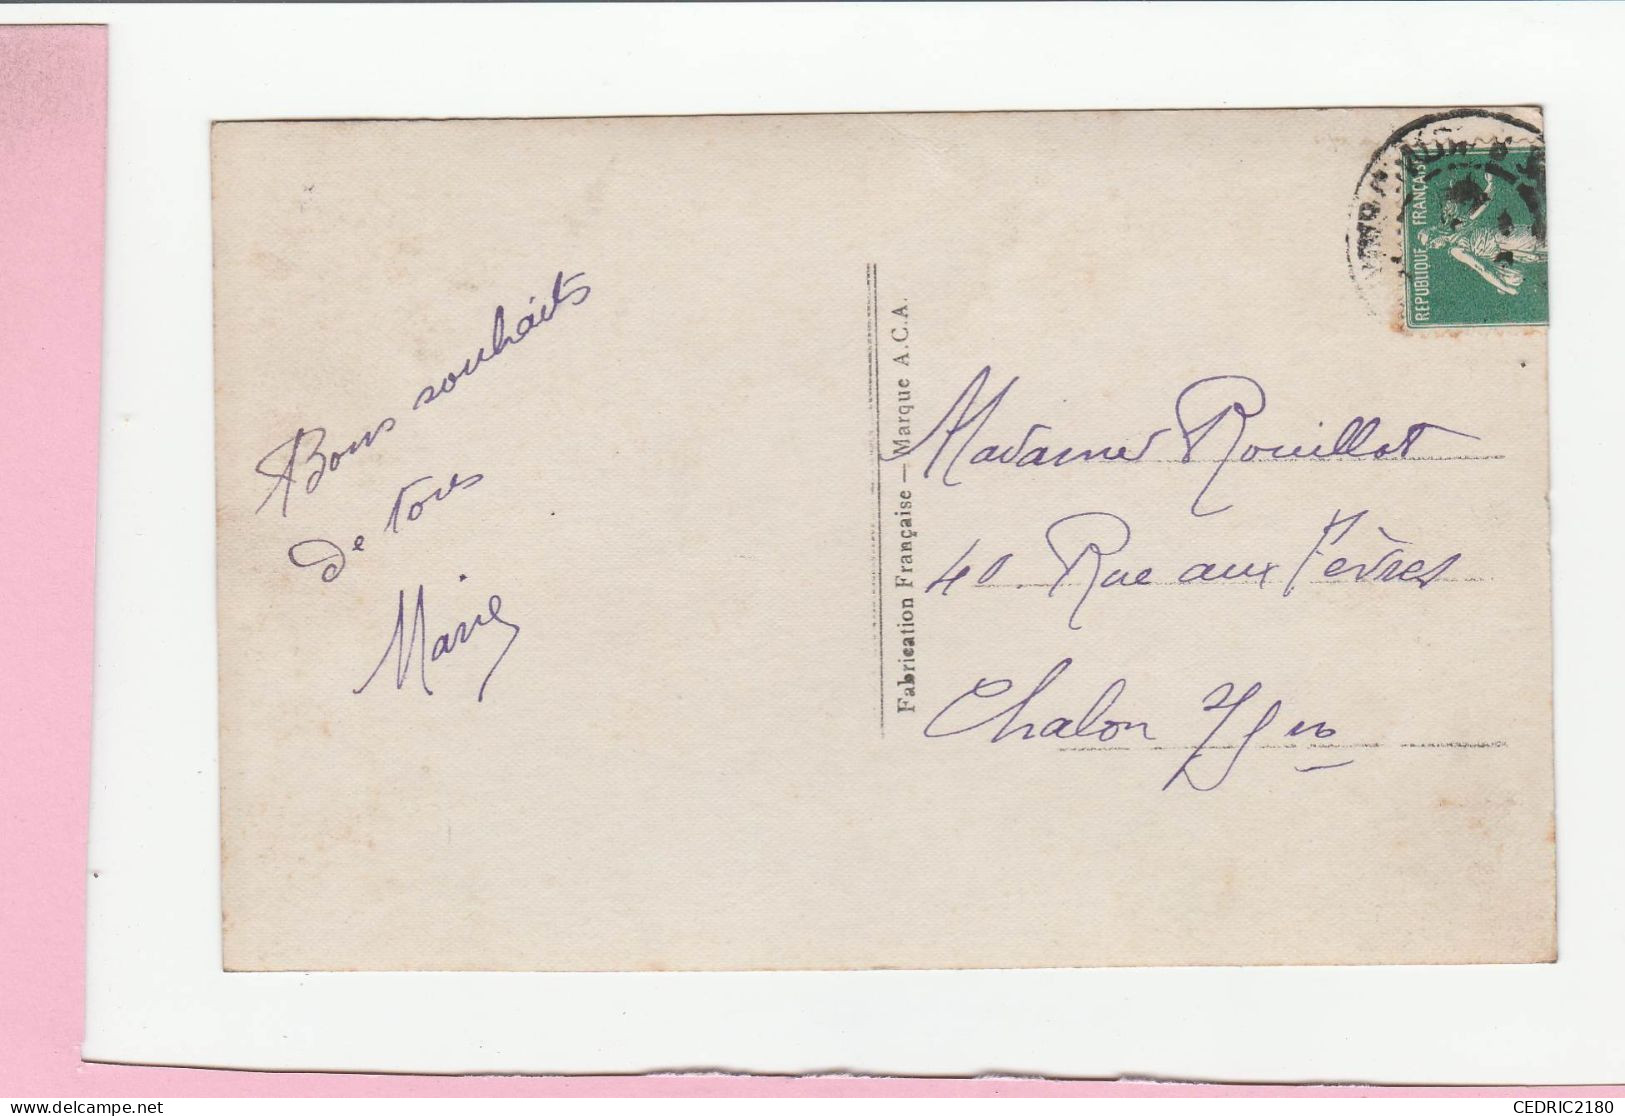 Bons souhaits
de tous
Marie
Fabrication Française — Marque A.C.A.
REPUBLIQUE FRANÇAISE
Madame Rouillot
40 Rue aux Fèvres
Chalon
CEDRIC2180